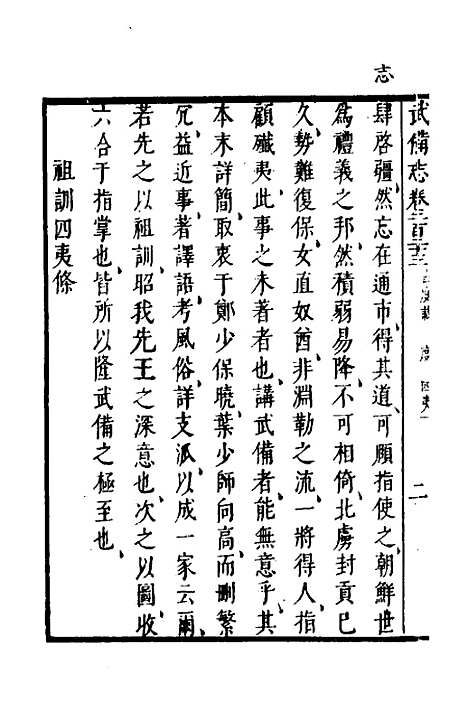 志
武備志卷二百二十三 占度載 度 四夷一 二
肆啓疆然忘在通市得其道可頤指使之朝鮮世
爲禮義之邦然積弱易降不可相倚北虜封貢已
久勢難復保女直奴酋非淵勒之流一將得人指
顧殲夷此事之未著者也講武備者能無意乎其
本末詳簡取衷于鄭少保曉葉少師向高而刪繁
冗益近事著譯語考風俗詳支派以成一家云爾
若先之以祖訓昭我先王之深意也次之以圖收
六合于指掌也皆所以隆武備之極至也
祖訓四夷條